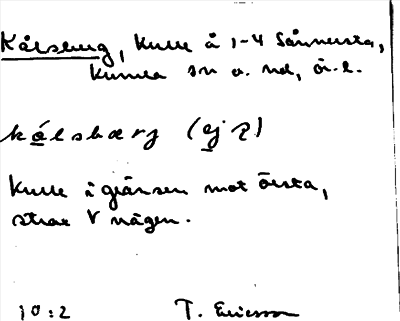 Kålsberg, Kulle å 1-4 Sånnersta,
Kumla sn o. hd, ör. l.
kålsbærj (ej 2)
Kulle i gränsen mot Örsta,
strax V vägen.
10:2 T. Ericsson